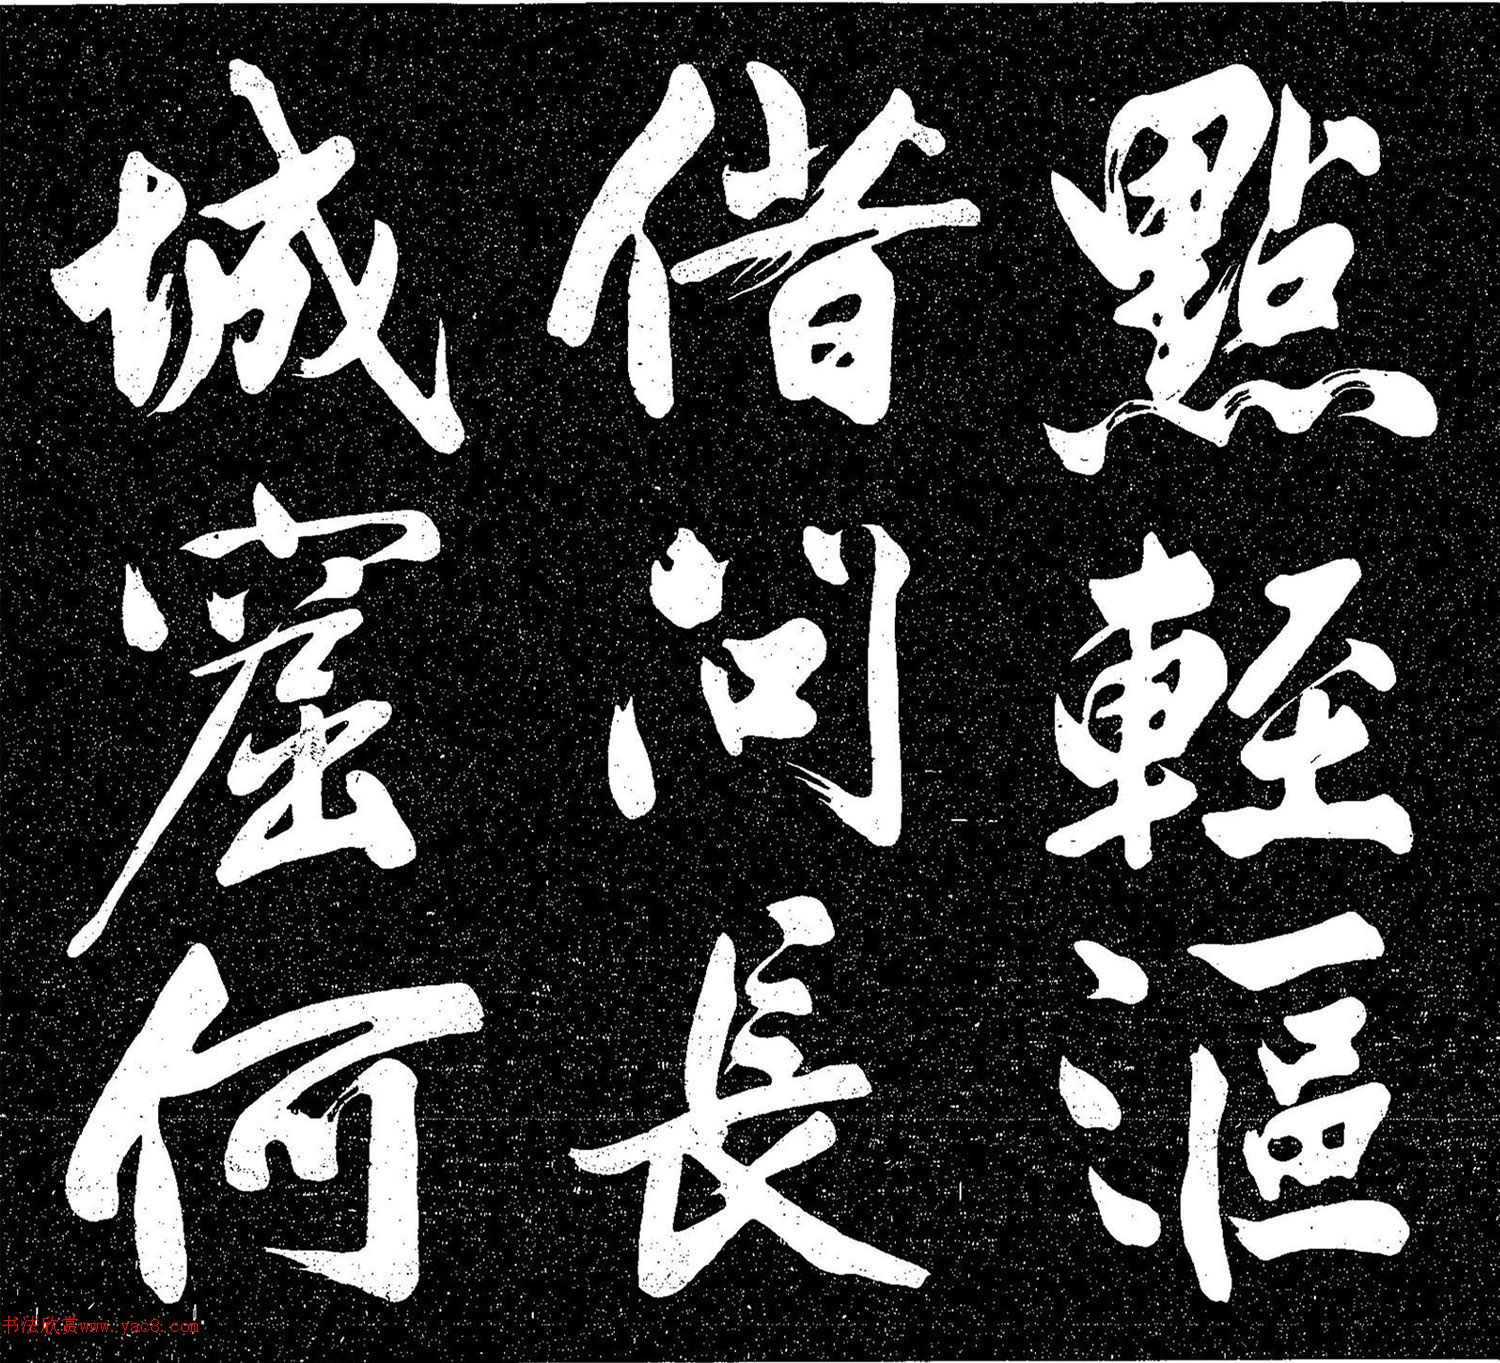 點輕漚
借問長
城窟何
书法欣赏www.yac8.com